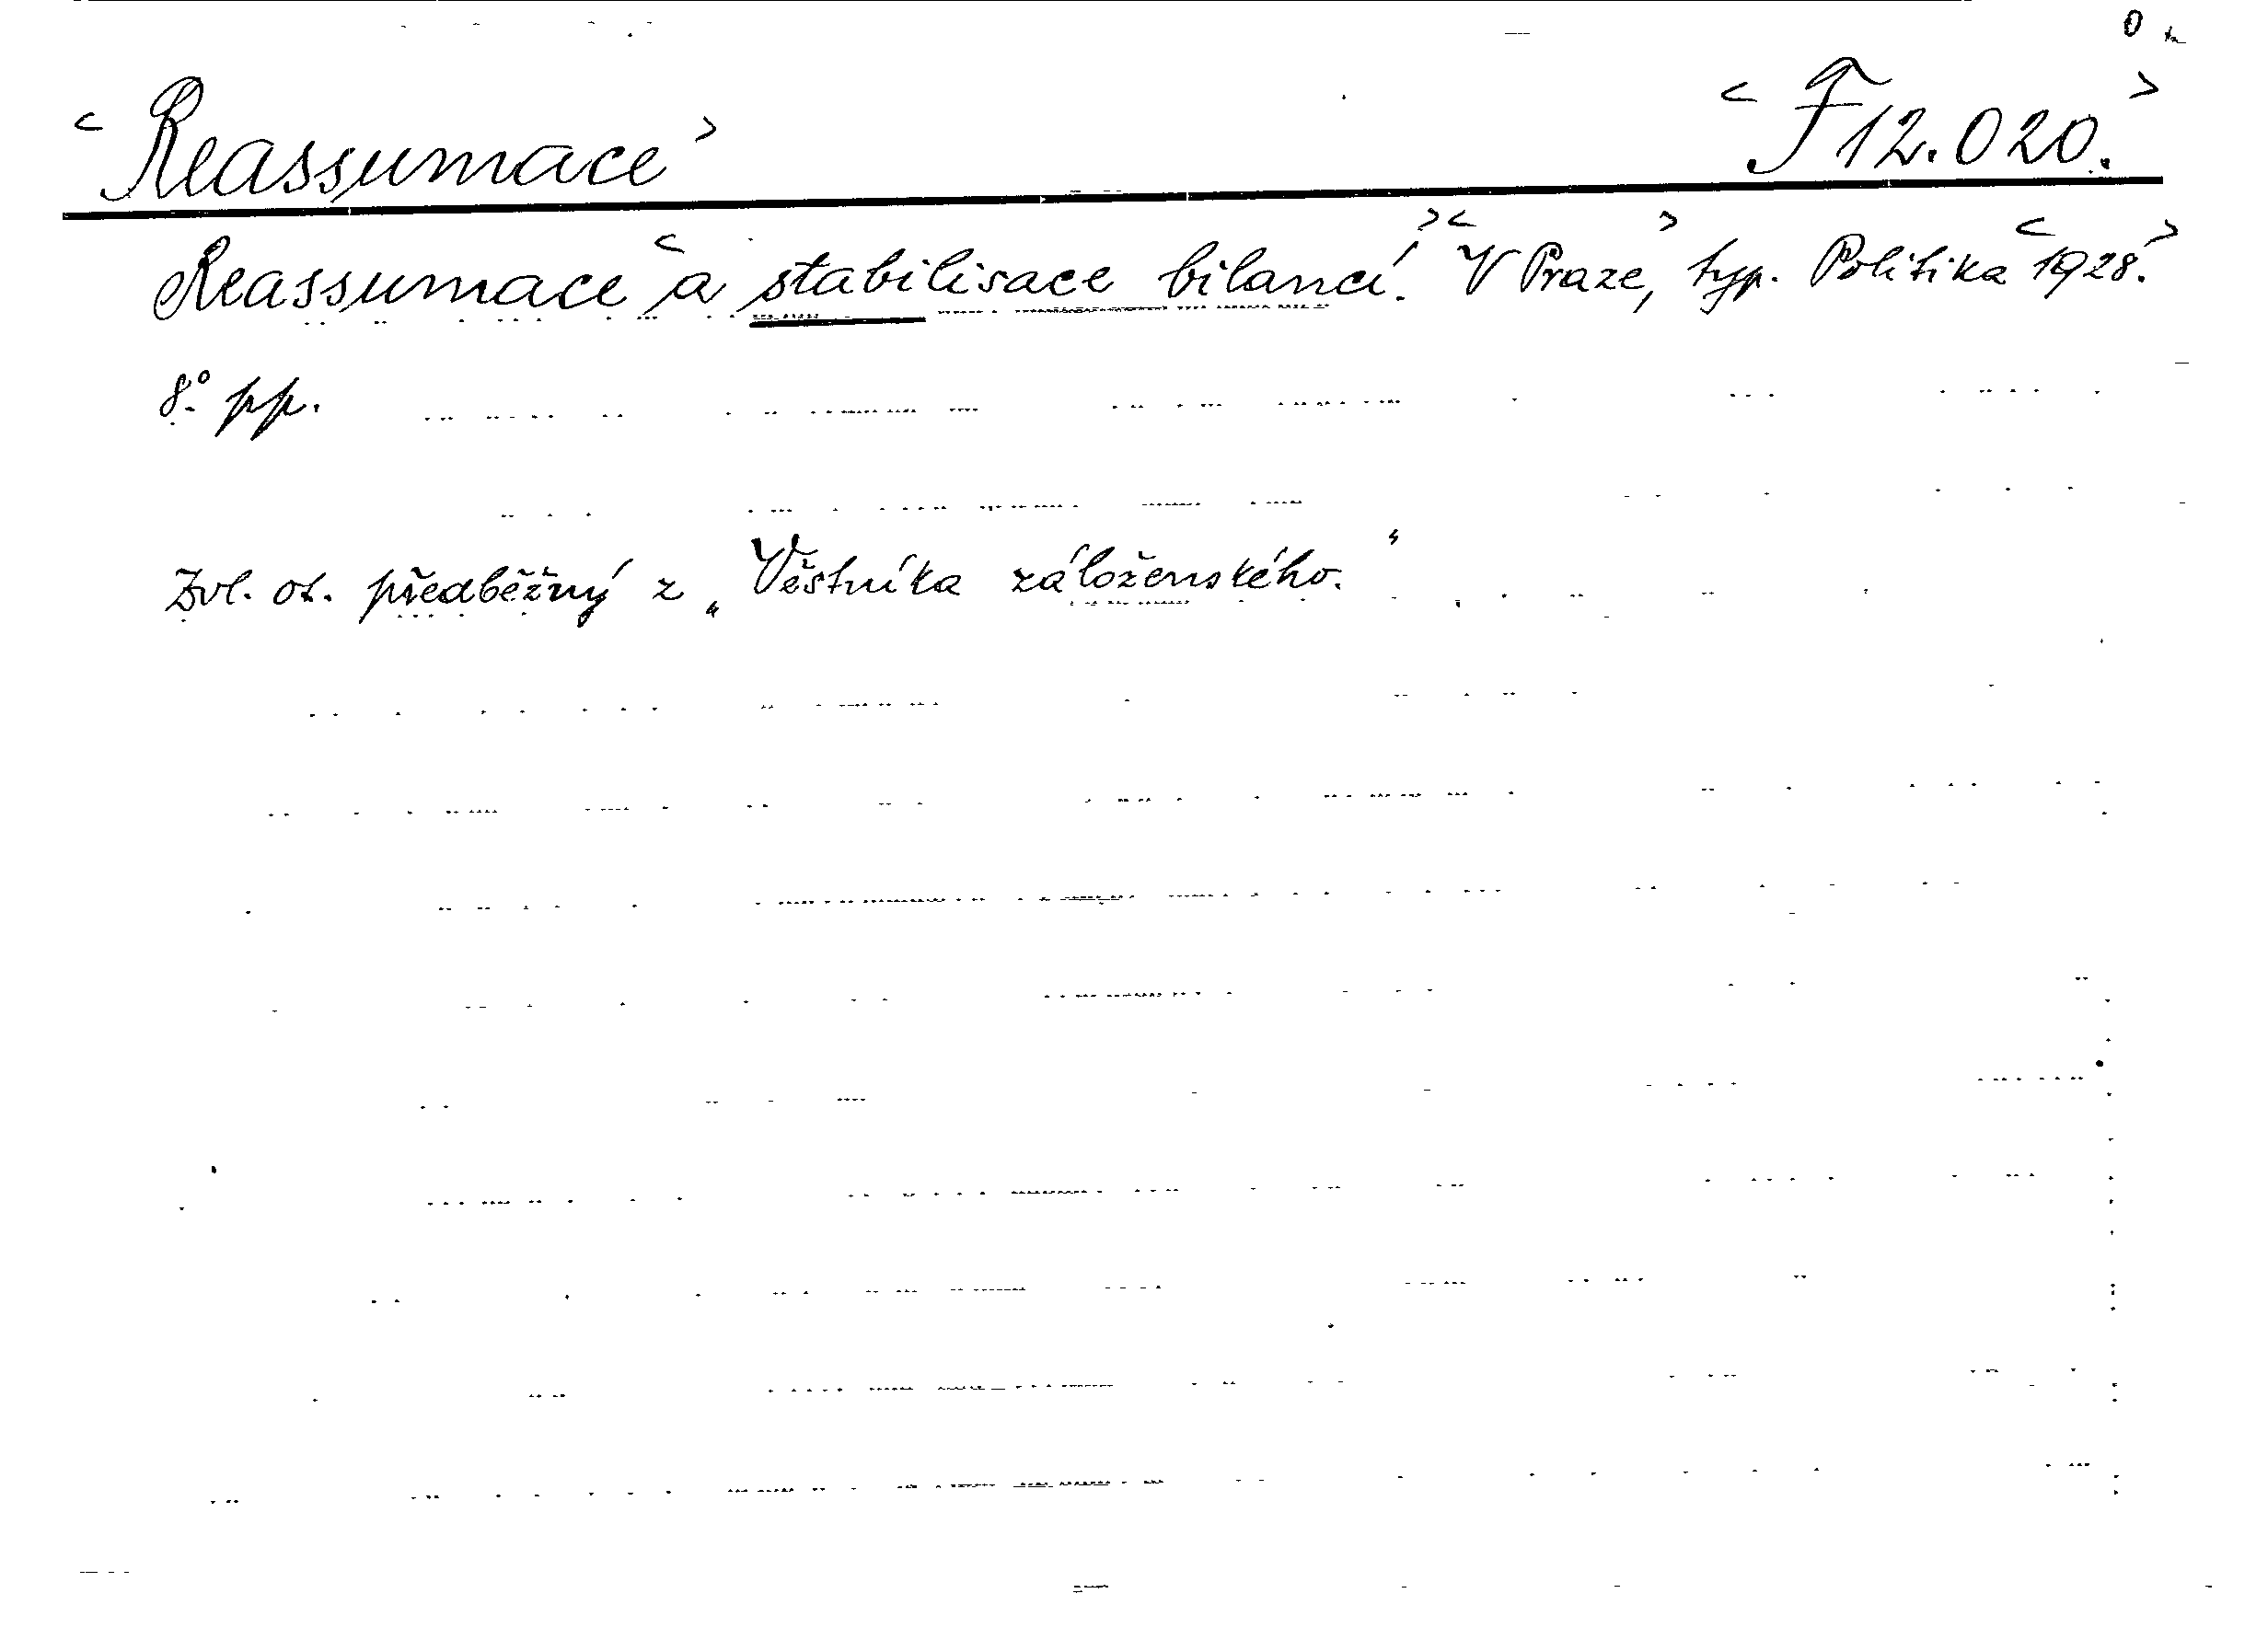 <Reassumace> <F 12.020.>
Reassumace < a stabilisace bilancí. >< V Praze, > typ. Politika < 1928. >
8.° pp.
Zvl. ot. předběžný z „Věstníka záloženského.“